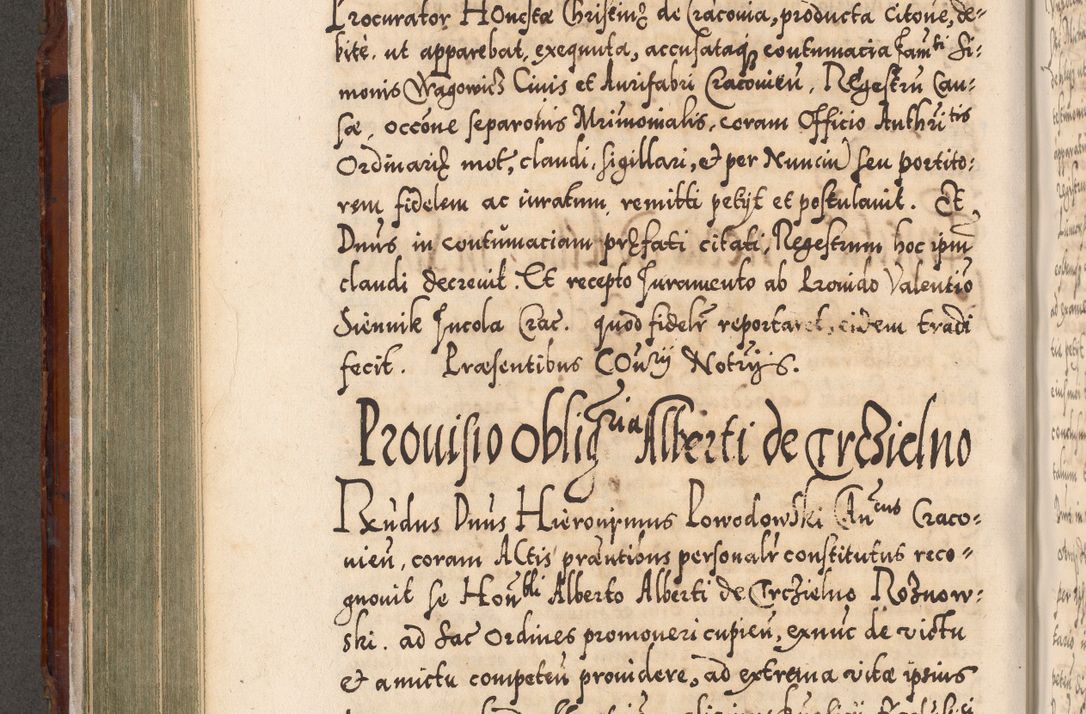 Procurator Honestæ Griseinȝ de Cracouia, producta Citoñe, de=
bite, ut apparebat, exequuta, accusataqȝ contumacia fam̃ti Si=
monis Wagowicz Ciuis et Aurifabri Cracouieñ, Regestrũ Cau=
sæ, occõne separõnis Mr̃imonialis, coram Officio Authr̃itis
Ordinarię mot, claudi, sigillari, et per Nunciũ seu portito=
rem, fidelem ac iuratum, remitti petijt et postulauit. Et
Dnũs in contumaciam pręfati citati, Regestrum hoc ipm̃
claudi decreuit. Et recepto Juramento ab Prouido Valentio
Siennik Jncola Crac. quod fidelr̃ reportaret, eidem tradi
fecit. Præsentibus COur̃ij Notrijs.
Prouisio obligr̃ia Alberti de Trczielno
Rñdus Dnũs Hieronijmus Powodowski Cañcus Craco=
uieñ, coram ACtis præntiõns personalr̃ constitutus reco=
gnouit se Hoñbli Alberto Alberti de Trczielno Roznow=
ski, ad Sac Ordines promoueri cupieñ, exnũc de victu
et amictu competeñ prouidere, ad extrema vitæ ipsius